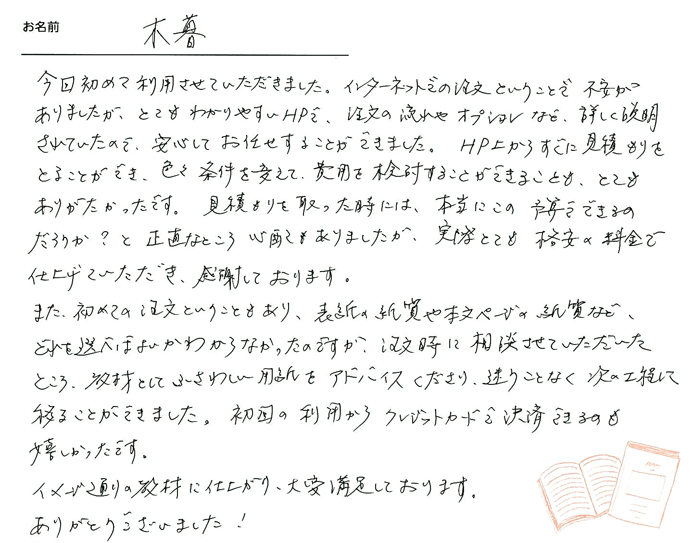 お名前 木暮
今回初めて利用させていただきました。インターネットでの注文ということで 不安が
ありましたが、とてもわかりやすいHPで、注文の流れやオプションなど、詳しく説明
されていたので、安心してお任せすることができました。 HP上からすぐに見積もりを
とることができ、色々条件を変えて、費用を検討することができることも、とても
ありがたかったです。 見積もりを取った時には、本当にこの予算でできるの
だろうか？と正直なところ心配でもありましたが、実際とても格安の料金で
仕上げていただき、感謝しております。
また、初めての注文ということもあり、表紙の紙質や本文ページの紙質など、
どれを選べばよいかわからなかったのですが、注文時に相談させていただいた
ところ、教材としてふさわしい用紙をアドバイスくださり、迷うことなく次の工程に
移ることができました。初回の利用からクレジットカードで決済できるのも
嬉しかったです。
イメージ通りの教材に仕上がり、大変満足しております。
ありがとうございました！